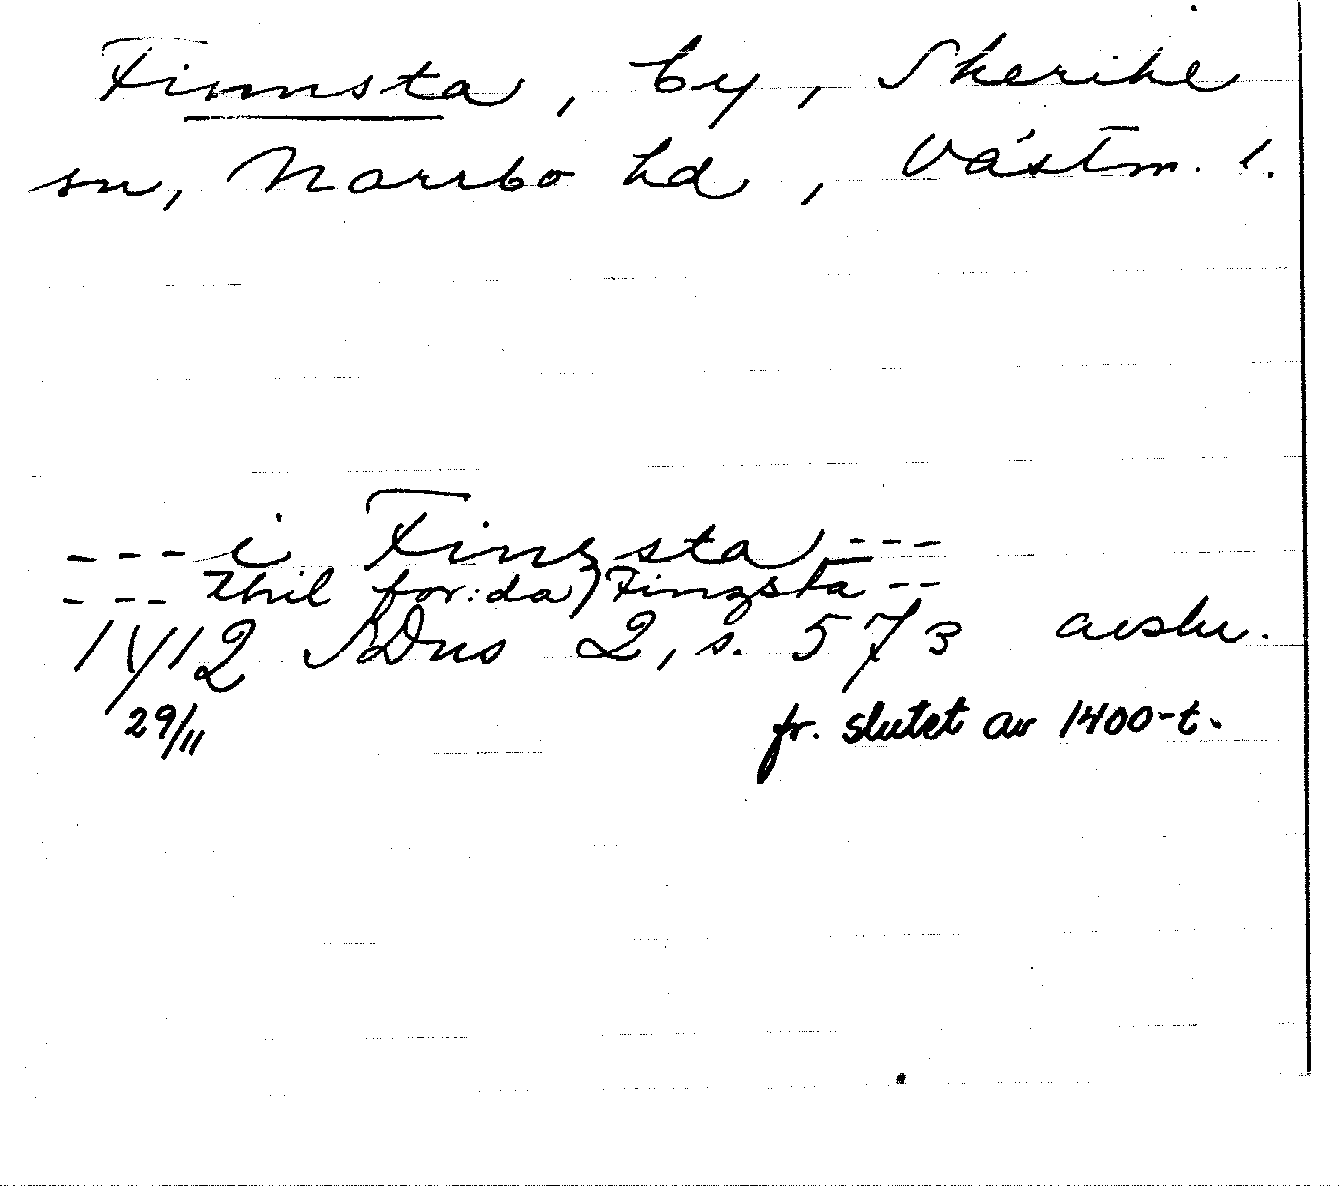 Finnsta, by, Skerike
sn, Norrbo hd, Västm. l.
--- i Finzsta ---
--- thil for:da) Finzsta --
1412 SDns 2, s. 573 avskr.
29/11 fr. slutet av 1400-t.